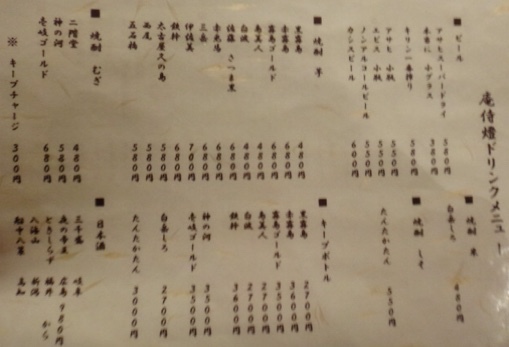 庵侍燈ドリンクメニュー
■ ビール
アサヒスーパードライ 580円
生 小グラス 380円
キリン一番搾り 580円
アサヒ 小瓶 550円
エビス 小瓶 550円
ノンアルコールビール 500円
カシスビール 600円
■ 焼酎 芋
黒霧島 480円
赤霧島 680円
霧島ゴールド 680円
島美人 480円
白波 480円
佐藤 さつま黒 680円
赤兎馬 680円
三岳 680円
伊佐美 700円
鉄幹 680円
太古屋久の島 580円
西尾 580円
五石橋 580円
■ 焼酎 むぎ
二階堂 480円
神の河 580円
壱岐ゴールド 680円
※ キープチャージ 300円
■ 焼酎 米
白岳しろ 480円
■ 焼酎 しそ
たんたかたん 530円
■ キープボトル
黒霧島 2700円
赤霧島 3600円
霧島ゴールド 3500円
島美人 2700円
白波 2700円
鉄幹 3600円
神の河 3500円
壱岐ゴールド 3500円
白岳しろ 2700円
たんたかたん 3000円
■ 日本酒
三千盛 岐阜
広島 980円
ときしらず 福井 から
八海山 新潟
船中八策 高知